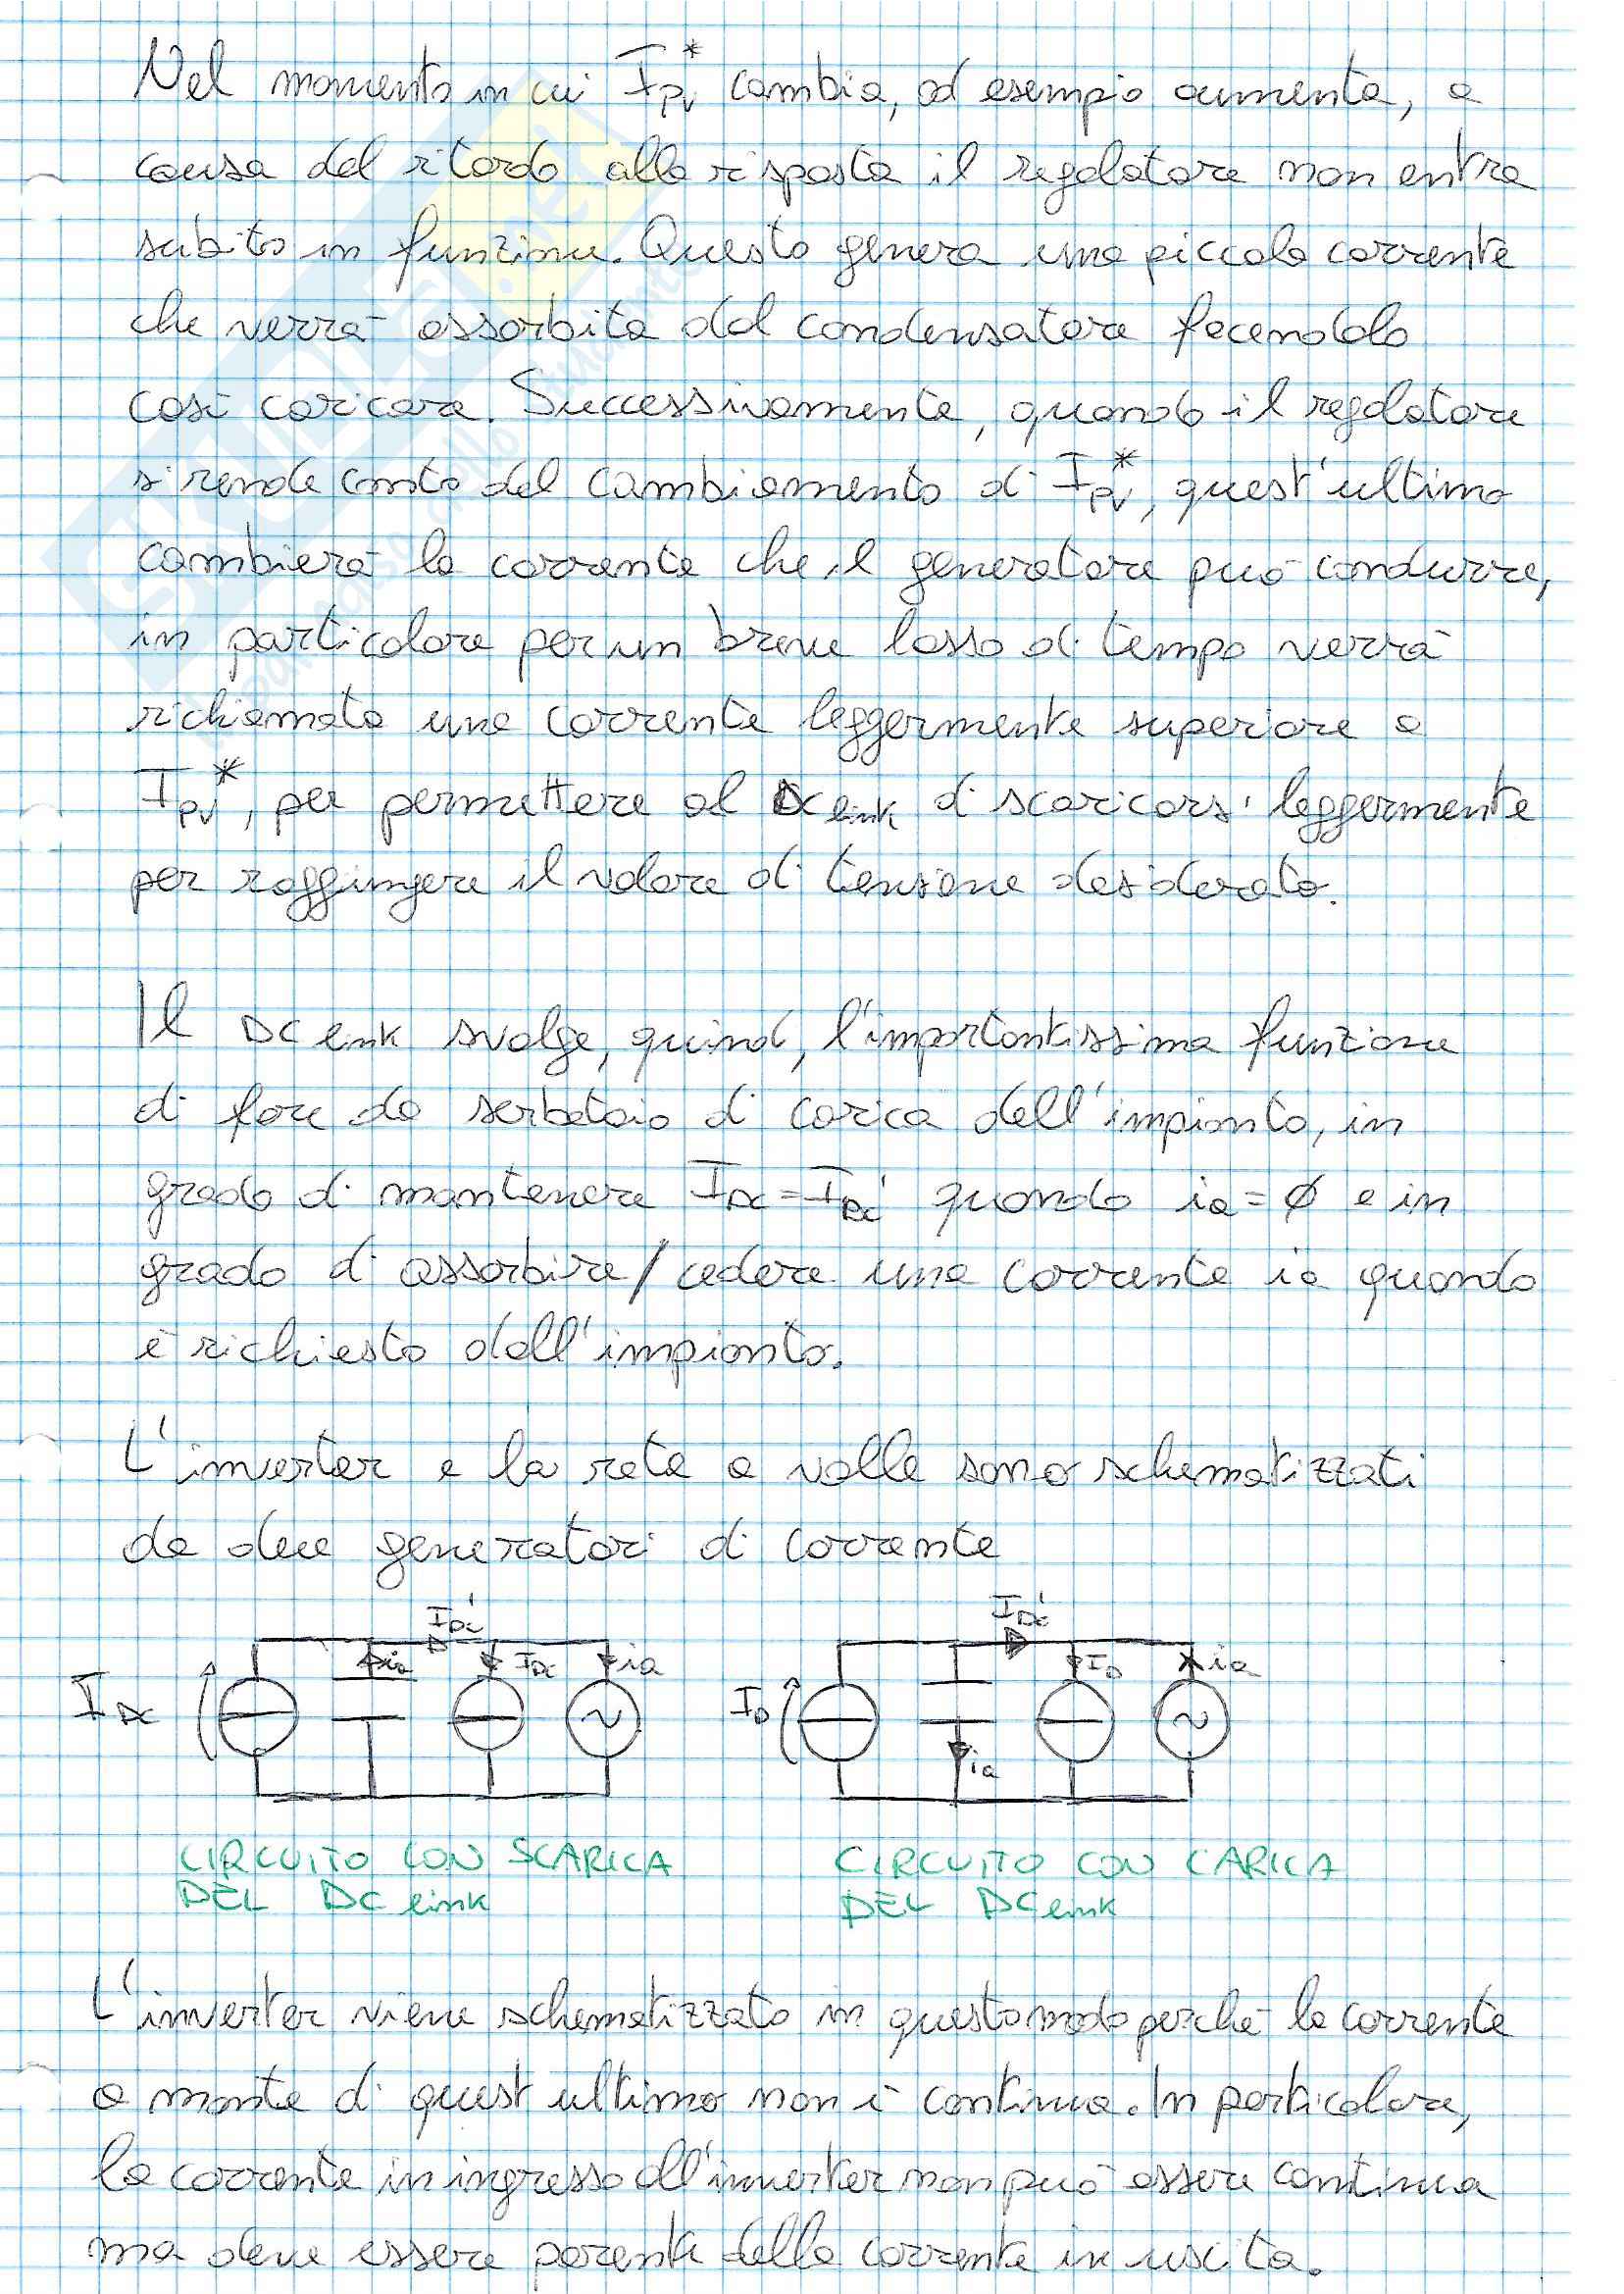 Nel momento in cui I_PV* cambia, ad esempio aumenta, a
causa del ritardo alla risposta il regolatore non entra
subito in funzione. Questo genera una piccola corrente
che verrà assorbita dal condensatore facendolo
così caricare. Successivamente, quando il regolatore
si rende conto del cambiamento di I_PV*, quest'ultimo
cambierà la corrente che il generatore può condurre,
in particolare per un breve lasso di tempo verrà
richiamata una corrente leggermente superiore a
I_PV*, per permettere al DC link di scaricarsi leggermente
per raggiungere il valore di tensione desiderato.
Il DC link svolge, quindi, l'importantissima funzione
di fare da serbatoio di carica dell'impianto, in
grado di mantenere I_DC = I_DC' quando ia = ∅ e in
grado di assorbire/cedere una corrente ia quando
è richiesto dall'impianto.
L'inverter e la rete a valle sono schematizzati
da due generatori di corrente
I_DC' I_DC'
ia I_DC ia I_D ia
I_DC I_D
ia
CIRCUITO CON SCARICA CIRCUITO CON CARICA
DEL DC link DEL DC link
L'inverter viene schematizzato in questo modo perché la corrente
a monte di quest'ultimo non è continua. In particolare,
la corrente in ingresso all'inverter non può essere continua
ma deve essere parente della corrente in uscita.
SKUOLA.net